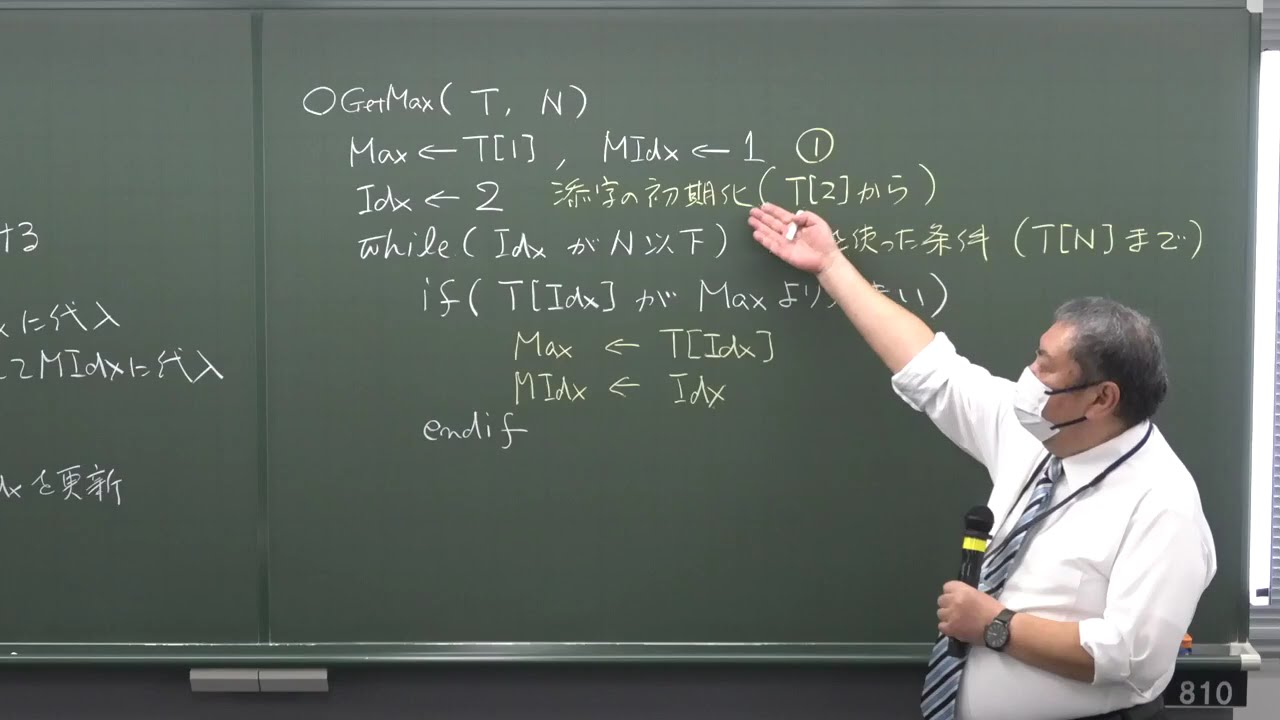 する
xに代入
てMIdxに代入
dxを更新
○GetMax( T, N)
Max ← T[1] , MIdx ← 1 ①
Idx ← 2 添字の初期化( T[2]から)
while( Idx が N 以下) を使った条件 (T[N]まで)
if( T[Idx] が Max より きい)
Max ← T[Idx]
MIdx ← Idx
endif
810